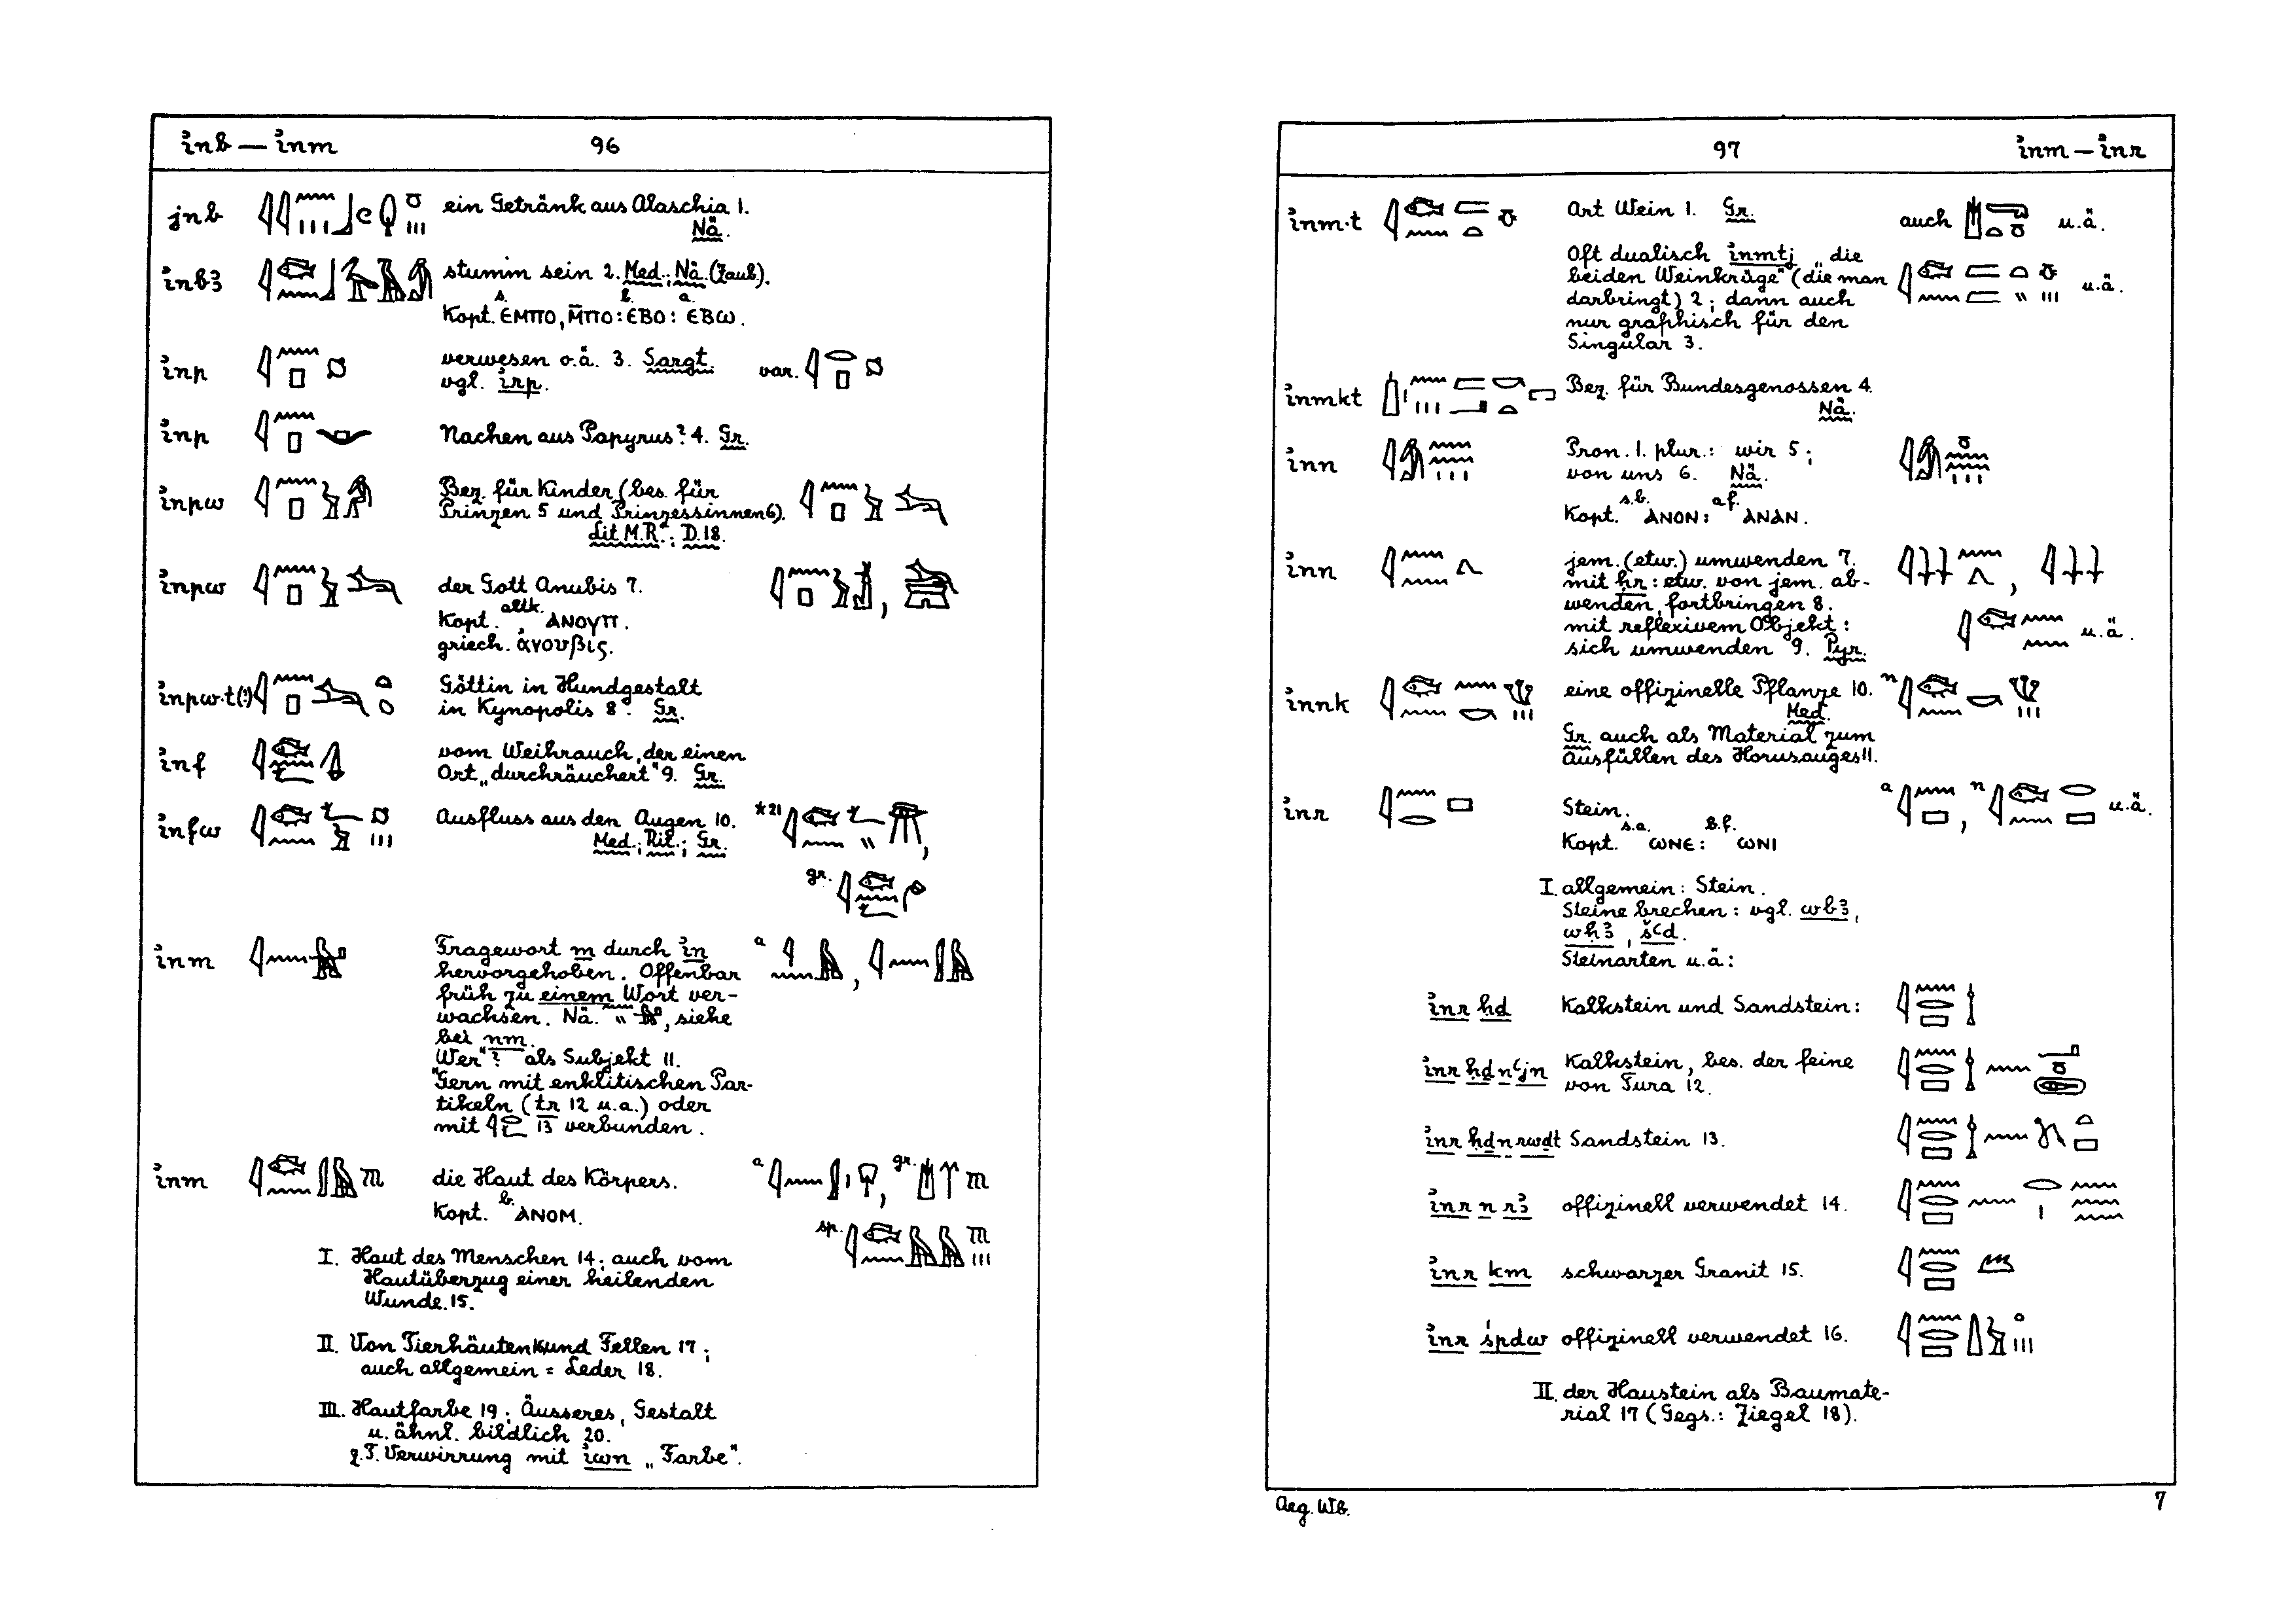 inb — inm 96
jnb ein Getränk aus Alaschia 1.
Nä.
inb3 stumm sein 2. Med.; Nä. (Zaub).
s. b. a.
Kopt. ⲈⲘⲠⲞ, ⲘⲠⲞ: ⲈⲂⲞ: ⲈⲂⲰ.
inp verwesen o.ä. 3. Sargt. var.
vgl. irp.
inp Nachen aus Papyrus? 4. Gr.
inpw Bez. für Kinder (bes. für
Prinzen 5 und Prinzessinnen 6).
Lit M.R.; D.18.
inpw der Gott Anubis 7.
altk.
Kopt. ⲀⲚⲞⲨⲠ.
griech. ἀνουβις.
inpw·t(?) Göttin in Hundgestalt
in Kynopolis 8. Gr.
inf vom Weihrauch, der einen
Ort „durchräuchert" 9. Gr.
infw Ausfluss aus den Augen 10. *21
Med.; Rit.; Gr.
gr.
inm Fragewort m durch in a
hervorgehoben. Offenbar
früh zu einem Wort ver-
wachsen. Nä. , siehe
bei nm.
„Wer"? als Subjekt 11.
Gern mit enklitischen Par-
tikeln (tr 12 u.a.) oder
mit 13 verbunden.
inm die Haut des Körpers. a gr.
b.
Kopt. ⲀⲚⲞⲘ.
sp.
I. Haut des Menschen 14; auch vom
Hautüberzug einer heilenden
Wunde. 15.
II. Von Tierhäuten 16 und Fellen 17;
auch allgemein = Leder 18.
III. Hautfarbe 19; Äusseres, Gestalt
u. ähnl. bildlich 20.
z.T. Verwirrung mit iwn „Farbe".
97 inm — inr
inm·t Art Wein 1. Gr. auch u.ä.
Oft dualisch inmtj „die
beiden Weinkrüge" (die man u.ä.
darbringt) 2; dann auch
nur graphisch für den
Singular 3.
inmkt Bez. für Bundesgenossen 4.
Nä.
inn Pron. 1. plur.: wir 5;
von uns 6. Nä.
s.b. a.f.
Kopt. ⲀⲚⲞⲚ: ⲀⲚⲀⲚ.
inn jem. (etw.) umwenden 7.
mit ḥr: etw. von jem. ab-
wenden, fortbringen 8.
mit reflexivem Objekt: u.ä.
sich umwenden 9. Pyr.
innk eine offizinelle Pflanze 10. n
Med.
Gr. auch als Material zum
Ausfüllen des Horusauges 11.
inr Stein. a n u.ä.
s.a. b.f.
Kopt. ⲰⲚⲈ: ⲰⲚⲒ
I. allgemein: Stein.
Steine brechen: vgl. wb3,
wh3, šꜥd.
Steinarten u.ä:
inr ḥḏ Kalkstein und Sandstein:
inr ḥḏ n ꜥjn Kalkstein, bes. der feine
von Tura 12.
inr ḥḏ n rwḏt Sandstein 13.
inr n r3 offizinell verwendet 14.
inr km schwarzer Granit 15.
inr śpdw offizinell verwendet 16.
II. der Haustein als Baumate-
rial 17 (Gegs.: Ziegel 18).
Aeg. Wb. 7